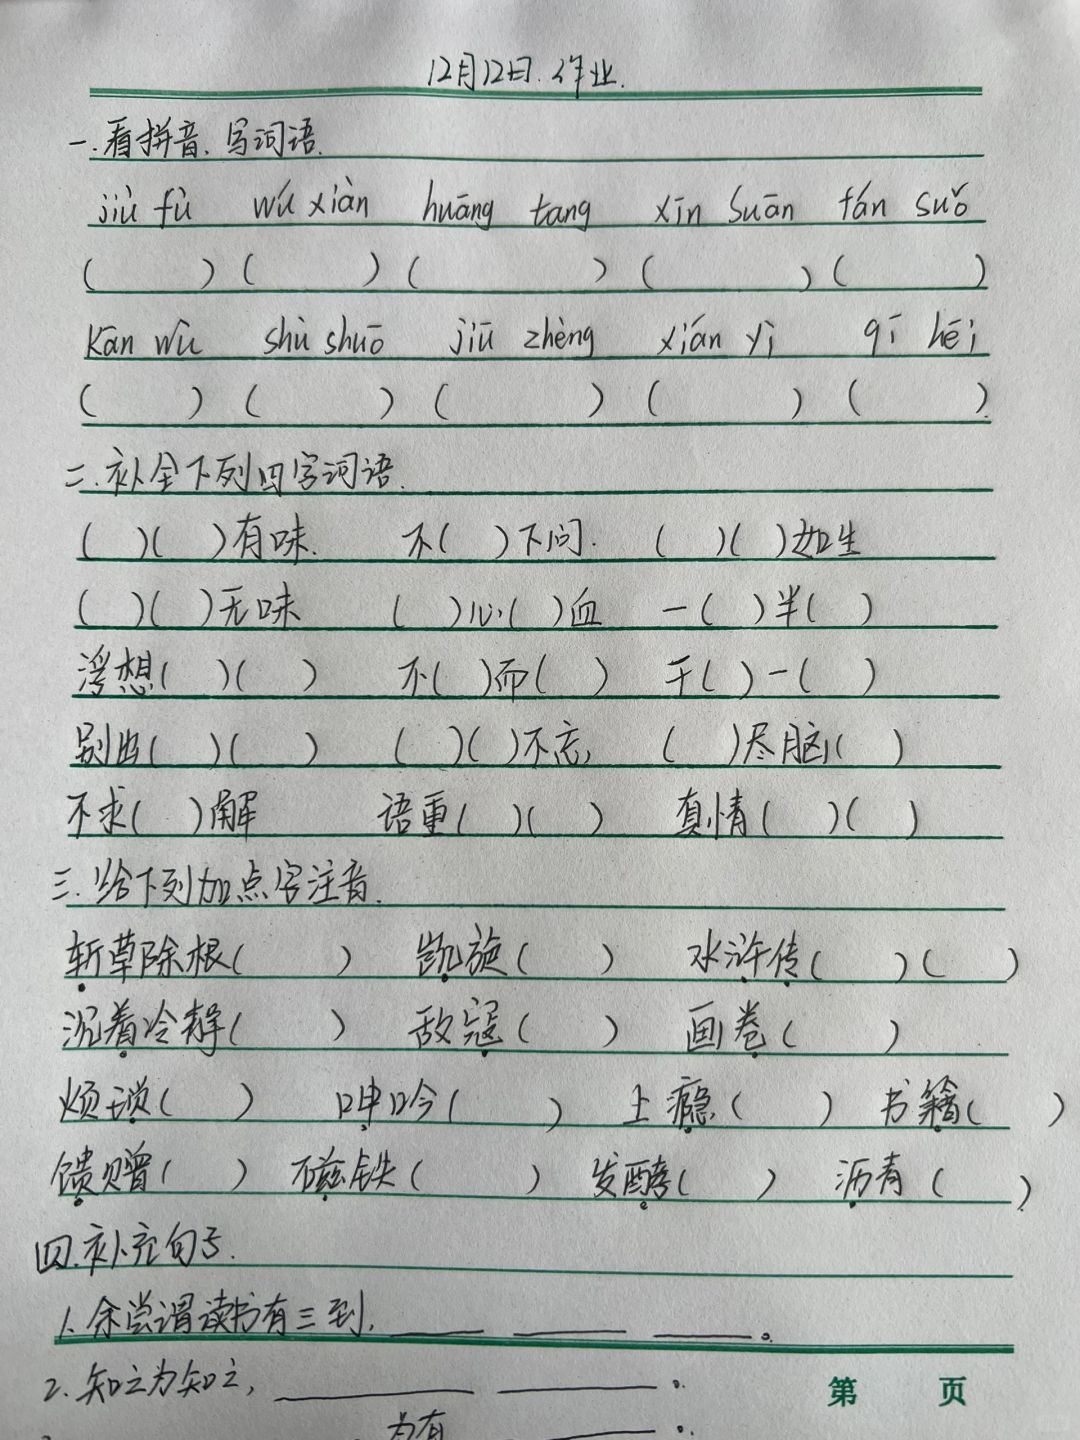 12月12日.作业.
一.看拼音.写词语.
jiù fù wú xiàn huāng tang xīn suān tán suǒ
( ) ( ) ( ) ( ) ( )
kān wù shù shuō jiū zhèng xián yì qī hēi
( ) ( ) ( ) ( ) ( ).
二.补全下列四字词语.
( )( )有味. 不( )下问. ( )( )如生
( )( )无味 ( )心( )血 一( )半( )
浮想( )( ) 不( )而( ) 千( )一( )
别出( )( ) ( )( )不忘, ( )尽脑( )
不求( )解 语重( )( ) 真情( )( )
三.给下列加点字注音.
斩草除根( ) 凯旋( ) 水浒传( )( )
沉着冷静( ) 敌寇( ) 画卷( )
烦琐( ) 呻吟( ) 上瘾( ) 书籍( )
馈赠( ) 磁铁( ) 发酵( ) 沥青( )
四.补充句子.
1.余尝谓读书有三到, ____ ____ ____。
2.知之为知之, ____ ____。
第 页
为有 ____。